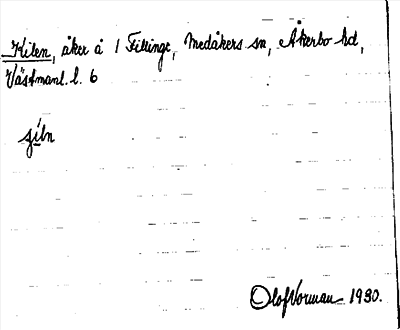 Kilen, åker å 1 Fillinge, Medåkers sn, Åkerbo hd,
Västmanl. l. 6
Olof Norman 1930.